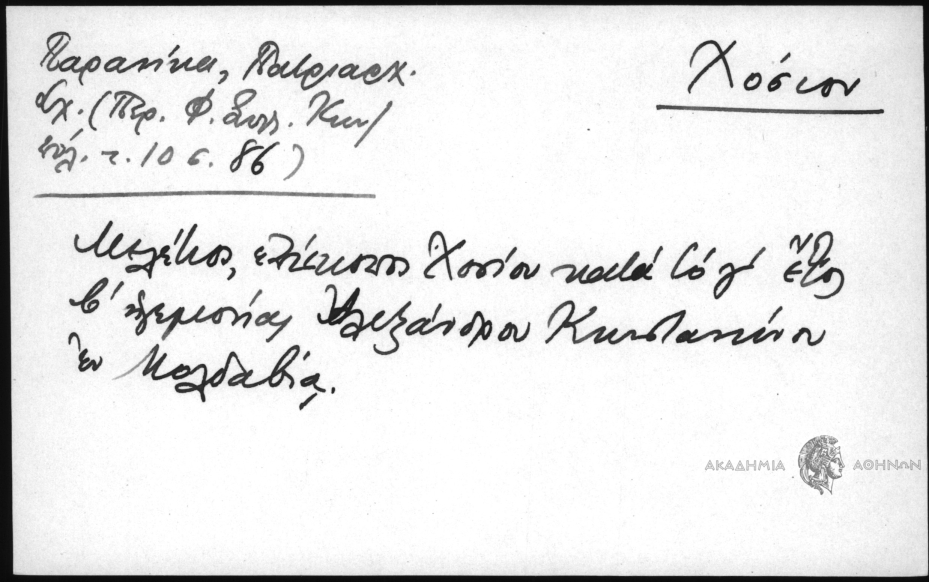 Παρανίκα, Πατριαρχ.
Σχ. (Περ. Φ. Συλλ. Κων/
πόλ. τ. 10 σ. 86)
Χόσιον
Μελέτιος, επίσκοπος Χοσίου κατά το γ' έτος
β' ηγεμονίας Αλεξάνδρου Κωνσταντίνου
ἐν Μολδαβίᾳ.
ΑΚΑΔΗΜΙΑ ΑΘΗΝΩΝ